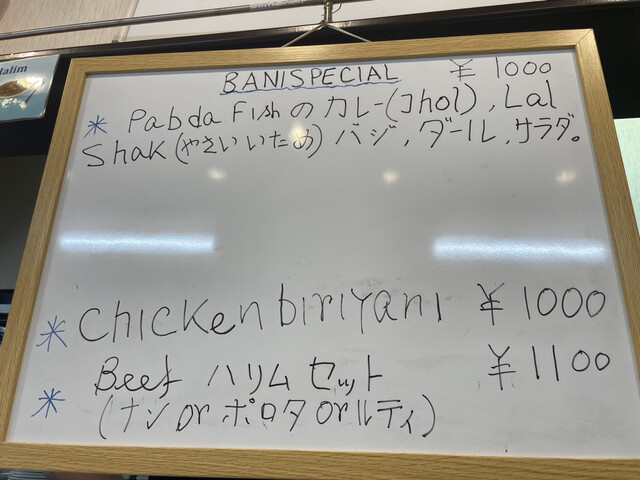 Halim
BANISPECIAL ¥ 1000
* Pabda Fish の カレー(Jhol), Lal
Shak (やさいいため) バジ, ダール, サラダ。
* Chicken biriyani ¥ 1000
* Beef ハリム セット ¥ 1100
(ナン or ポロタ or ルティ)